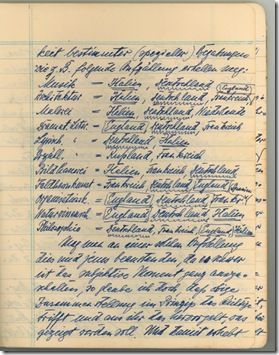 keit bestimmter (spezieller) Begabungen
wie z. B. folgende Aufzählung erhellen mag:
Musik – Italien, Deutschland, (England)
Architektur – Italien, Deutschland, Frankreich
Malerei – Italien, Deutschland, Niederlande
Dramat. Liter. – England, Deutschland, Frankreich
Lyrik – Deutschland, Italien
Erzähl. " – Rußland, Frankreich
Bildhauerei – Italien, Frankreich, Deutschland
Feldherrnkunst – Frankreich, Deutschland, England
– England, Deutschland,
Naturwissensch. – England, Deutschland, Italien
Philosophie – Deutschland, Frankreich, England, Italien
Mag man an einer solchen Aufstellung
dies und jenes beanstanden, da ja schwer
ist das subjektive Moment ganz auszu-
schalten, so glaube ich doch, daß diese
Zusammenstellung im Prinzip das Richtige
trifft und aus ihr das hervorgeht, was
gezeigt werden soll. Und damit erhebt